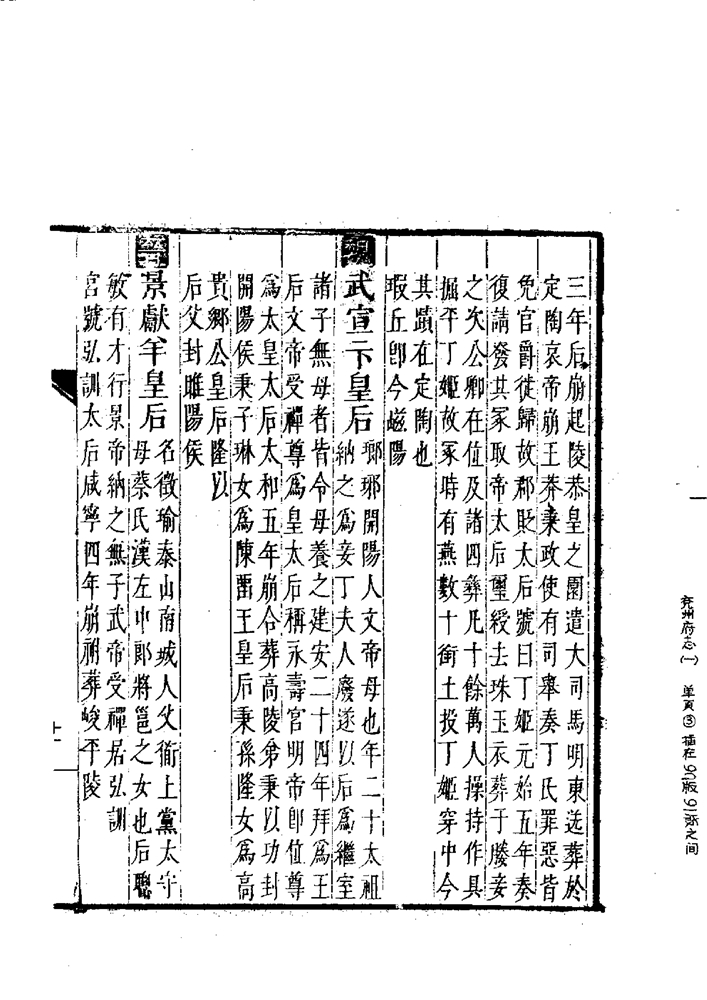 三年后崩起陵恭皇之園遣大司馬明東送葬於
定陶哀帝崩王莽秉政使有司舉奏丁氏罪惡皆
免官爵徙歸故郡貶太后號曰丁姬元始五年奏
復請發其冢取帝太后璽綬去珠玉衣葬于媵妾
之次公卿在位及諸四彝凡十餘萬人操持作具
掘平丁姬故冢時有燕數十銜土投丁姬穿中今
其蹟在定陶也
瑕丘卽今嵫陽
魏
武宣卞皇后瑯琊開陽人文帝母也年二十太祖
納之爲妾丁夫人廢遂以后爲繼室
諸子無母者皆令母養之建安二十四年拜爲王
后文帝受禪尊爲皇太后稱永壽宮明帝卽位尊
爲太皇太后太和五年崩合葬高陵弟秉以功封
開陽侯秉子琳女爲陳畱王皇后秉孫隆女爲高
貴鄉公皇后隆以
后父封睢陽侯
晉
景獻羊皇后名徽瑜泰山南城人父衜上黨太守
母蔡氏漢左中郎將邕之女也后聰
敏有才行景帝納之無子武帝受禪居弘訓
宮號弘訓太后咸寧四年崩祔葬峻平陵
十一
兖州府志(一) 单頁③ 插在90版91版之间